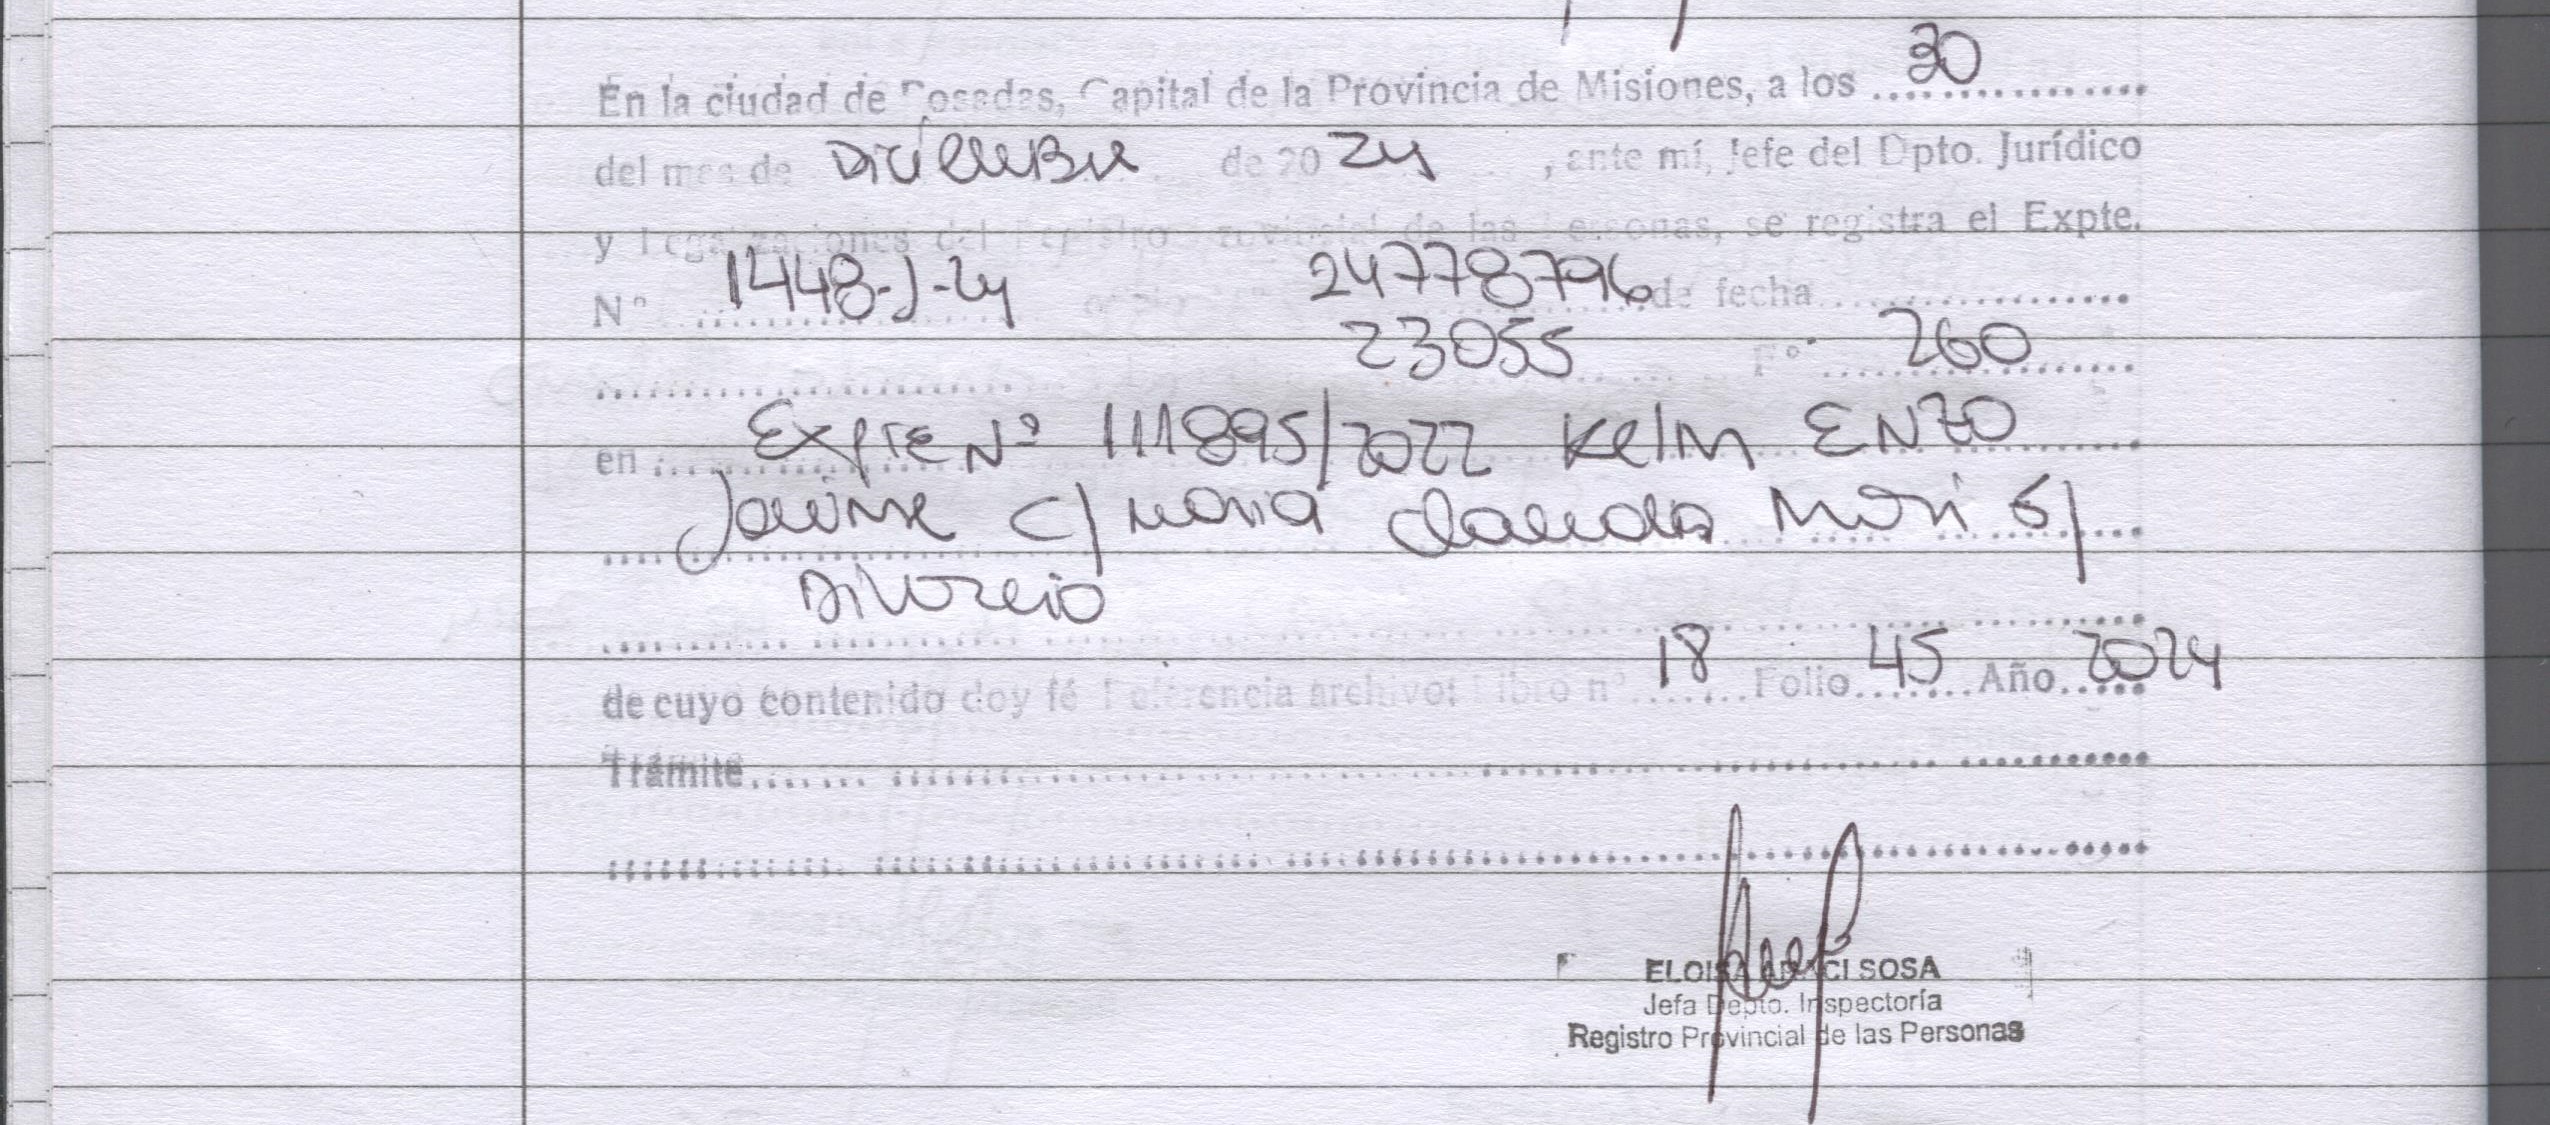 En la ciudad de Posadas, Capital de la Provincia de Misiones, a los 30
del mes de Diciembre de 20 24, ante mí, Jefe del Dpto. Jurídico
y Legalizaciones del Registro Provincial de las Personas, se registra el Expte.
N° 1448-J-24 24778796 de fecha
23055 F° 260
en Expte N° 111895/2022 Kelm ENZO
Jaime c/ Maria Claudia Mori s/
Divorcio
de cuyo contenido doy fé Referencia archivo: Libro n° 18 Folio 45 Año 2024
Trámite
ELOISA SOSA
Jefa Depto. Inspectoría
Registro Provincial de las Personas